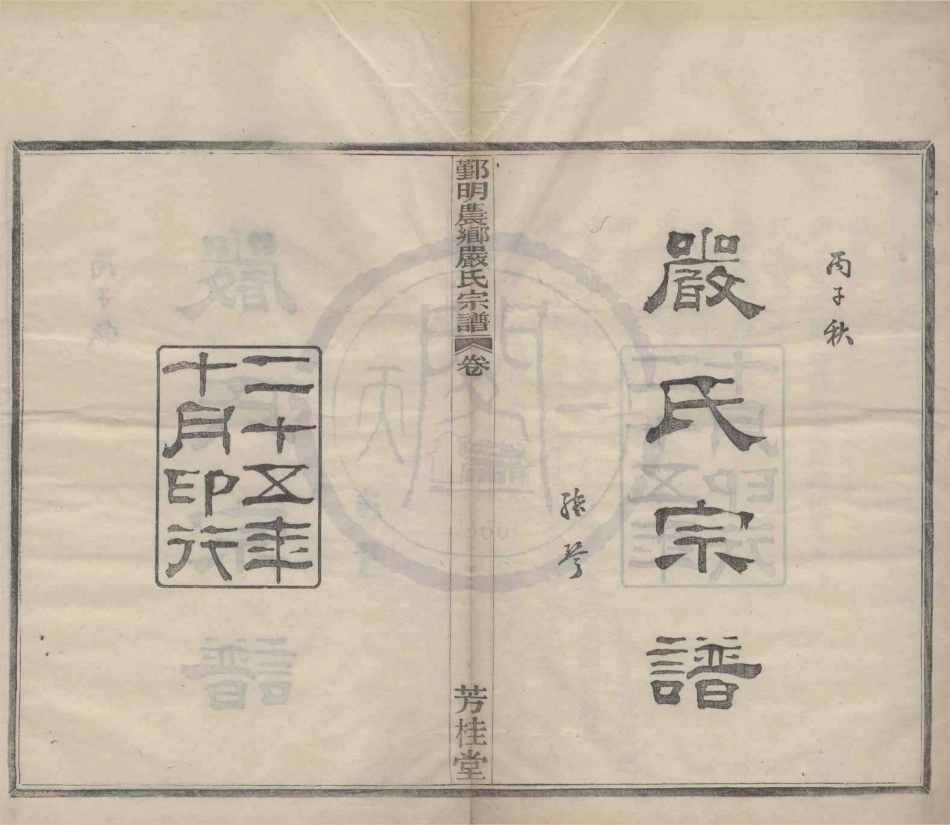 丙子秋
嚴氏宗譜
鄞明農鄉嚴氏宗譜
卷
芳桂堂
二十五年
十月印行